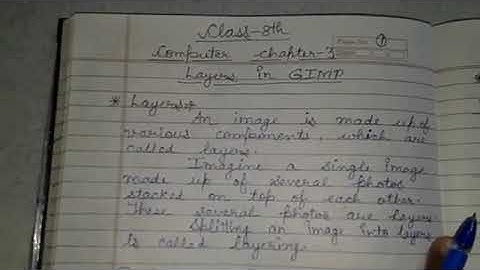 Class-8th
Computer chapter-3
Layers in GIMP
Page No. 1
* Layers
An image is made up of
various components, which are
called layers.
Imagine a single image
made up of several photos
stacked on top of each other.
These several photos are layers.
Splitting an image into layers
is called layering.